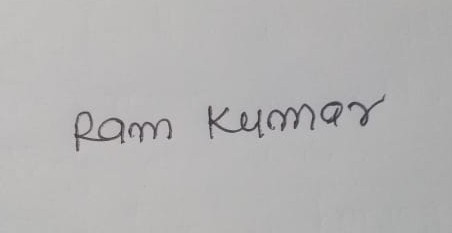 Ram Kumar